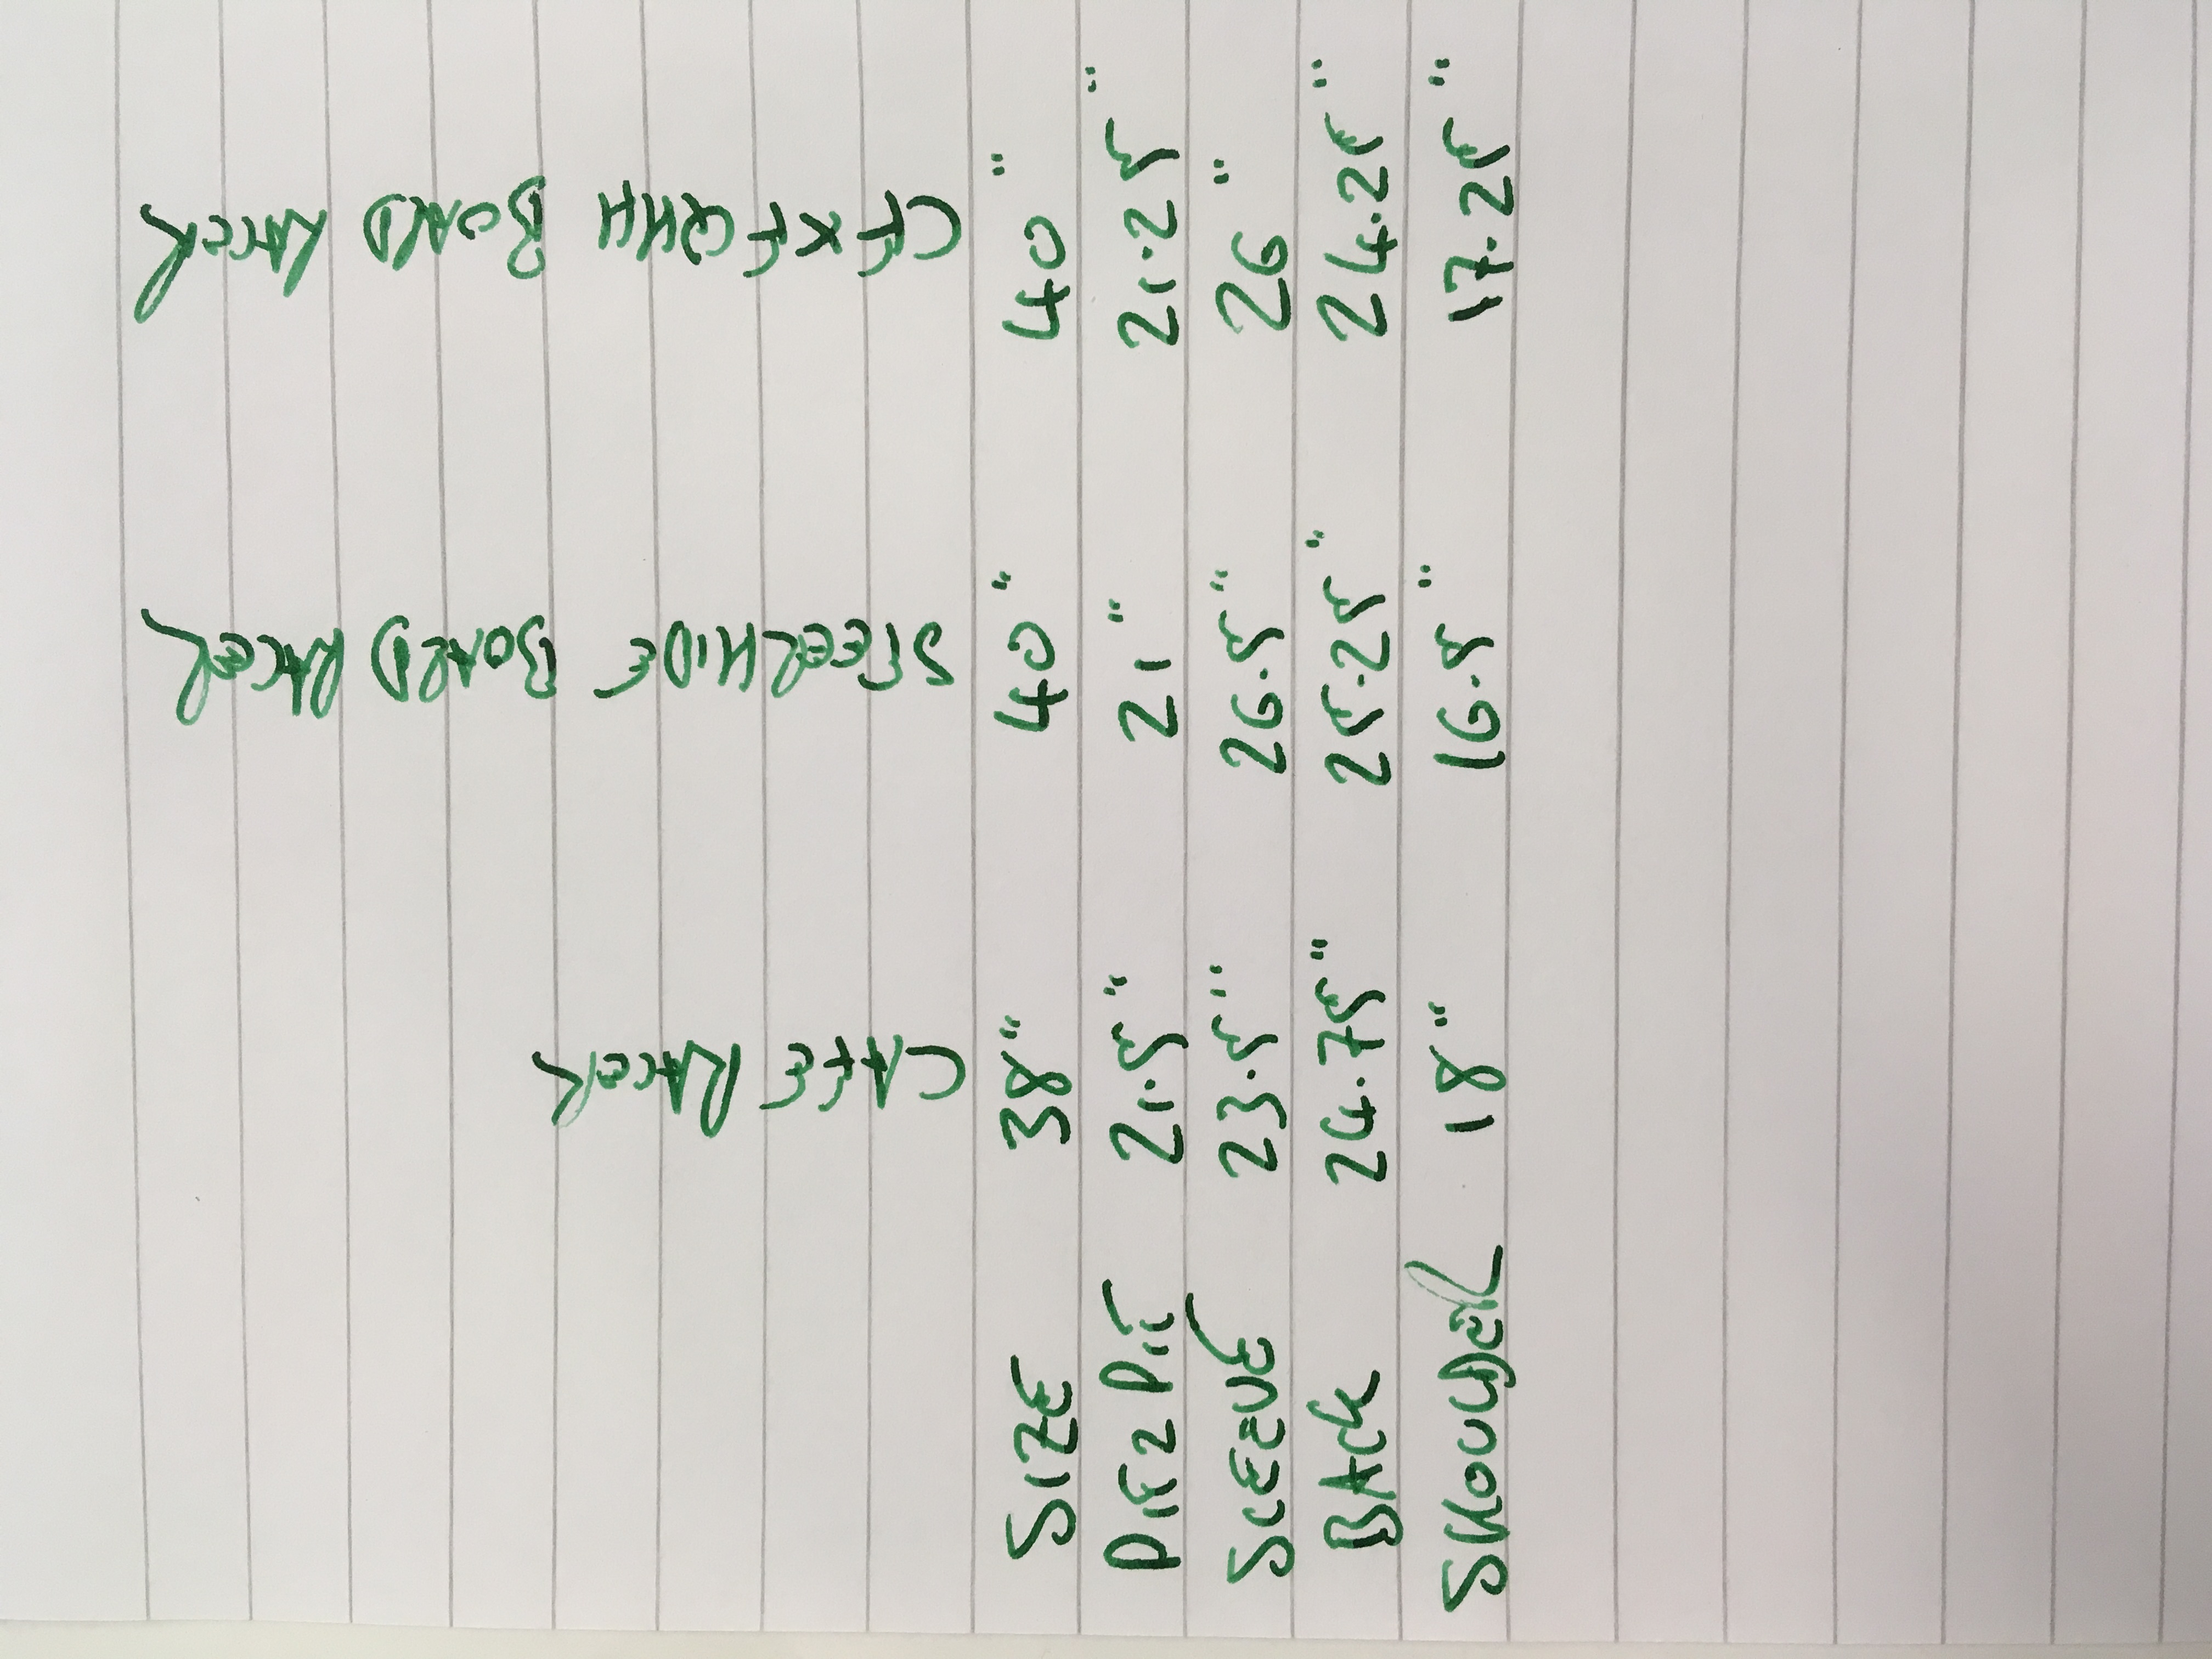 CAFE RACER STEELHIDE BOARD RACER CF X FQHH BOARD RACER
SIZE 38" 40" 40"
PIT 2 PIT 21.5" 21" 21.25"
SLEEVE 23.5" 26.5" 26"
BACK 24.75" 25.25" 24.25"
SHOULDER 18" 16.5" 17.25"